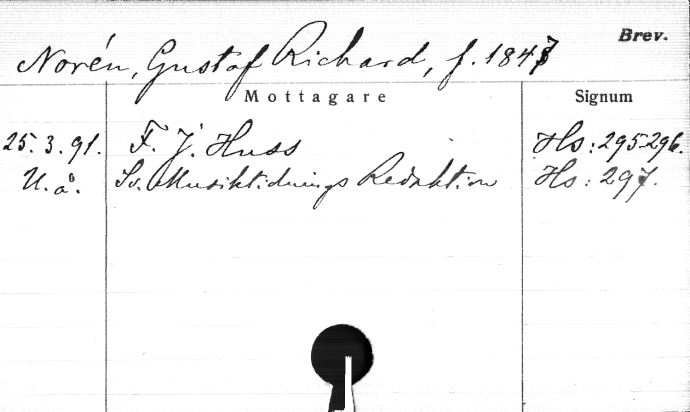 Brev.
Norén, Gustaf Richard, f. 1847
Mottagare Signum
25. 3. 91. F. J. Huss Hs: 295-296.
U. å. Sv. Musiktidnings Redaktion Hs: 297.